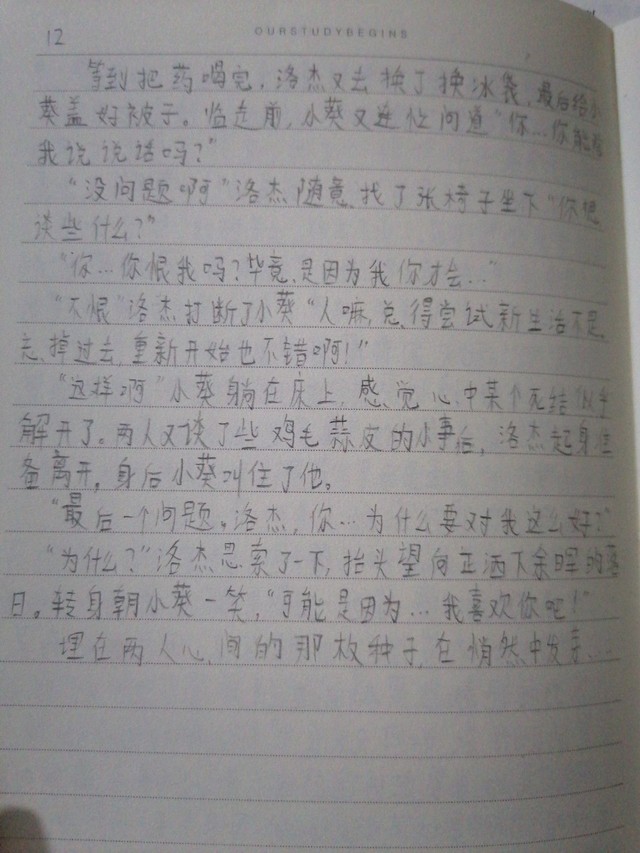 12
OURSTUDYBEGINS
等到把药喝完，洛杰又去换了换冰袋，最后给小
葵盖好被子。临走前，小葵又连忙问道“你…你能陪
我说说话吗？”
“没问题啊”洛杰随意找了张椅子坐下“你想
谈些什么？”
“你…你恨我吗？毕竟是因为我你才会…”
“不恨”洛杰打断了小葵“人嘛，总得尝试新生活不是，
忘掉过去，重新开始也不错啊！”
“这样啊”小葵躺在床上，感觉心中某个死结似乎
解开了。两人又谈了些鸡毛蒜皮的小事后，洛杰起身准
备离开，身后小葵叫住了他。
“最后一个问题。洛杰，你…为什么要对我这么好？”
“为什么？”洛杰思索了一下，抬头望向正洒下余晖的落
日。转身朝小葵一笑，“可能是因为…我喜欢你吧！”
埋在两人心间的那枚种子，在悄然中发芽…